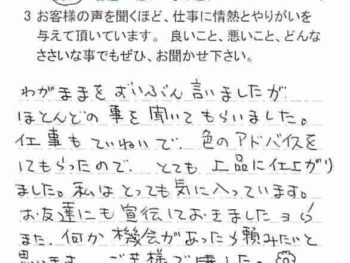 3 お客様の声を聞くほど、仕事に情熱とやりがいを
与えて頂いています。良いこと、悪いこと、どんな
ささいな事でもぜひ、お聞かせ下さい。
わがままをずいぶん言いましたが
ほとんどの事を聞いてもらいました。
仕事もていねいで、色のアドバイスを
してもらったので、とても上品に仕上がり
ました。私はとっても気に入っています。
お友達にも宣伝しておきましたョ
また、何か機会があったら頼みたいと
思います。ご苦様でした。